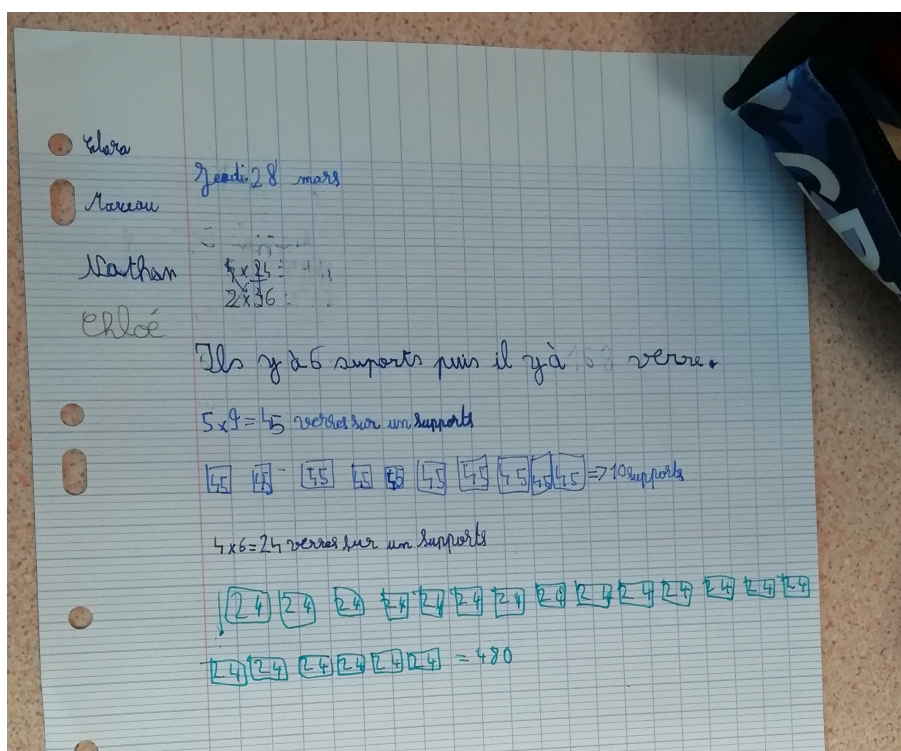 Clara
Jeudi 28 mars
Marceau
Nathan
4 x 24 =
2 x 36 =
Chloé
Ils y à 6 suports puis il y à verre.
5 x 9 = 45 verres sur un supports
45 45 45 45 45 45 45 45 45 45 => 10 supports
4 x 6 = 24 verres sur un supports
24 24 24 24 24 24 24 24 24 24 24 24 24 24
24 24 24 24 24 24 = 480